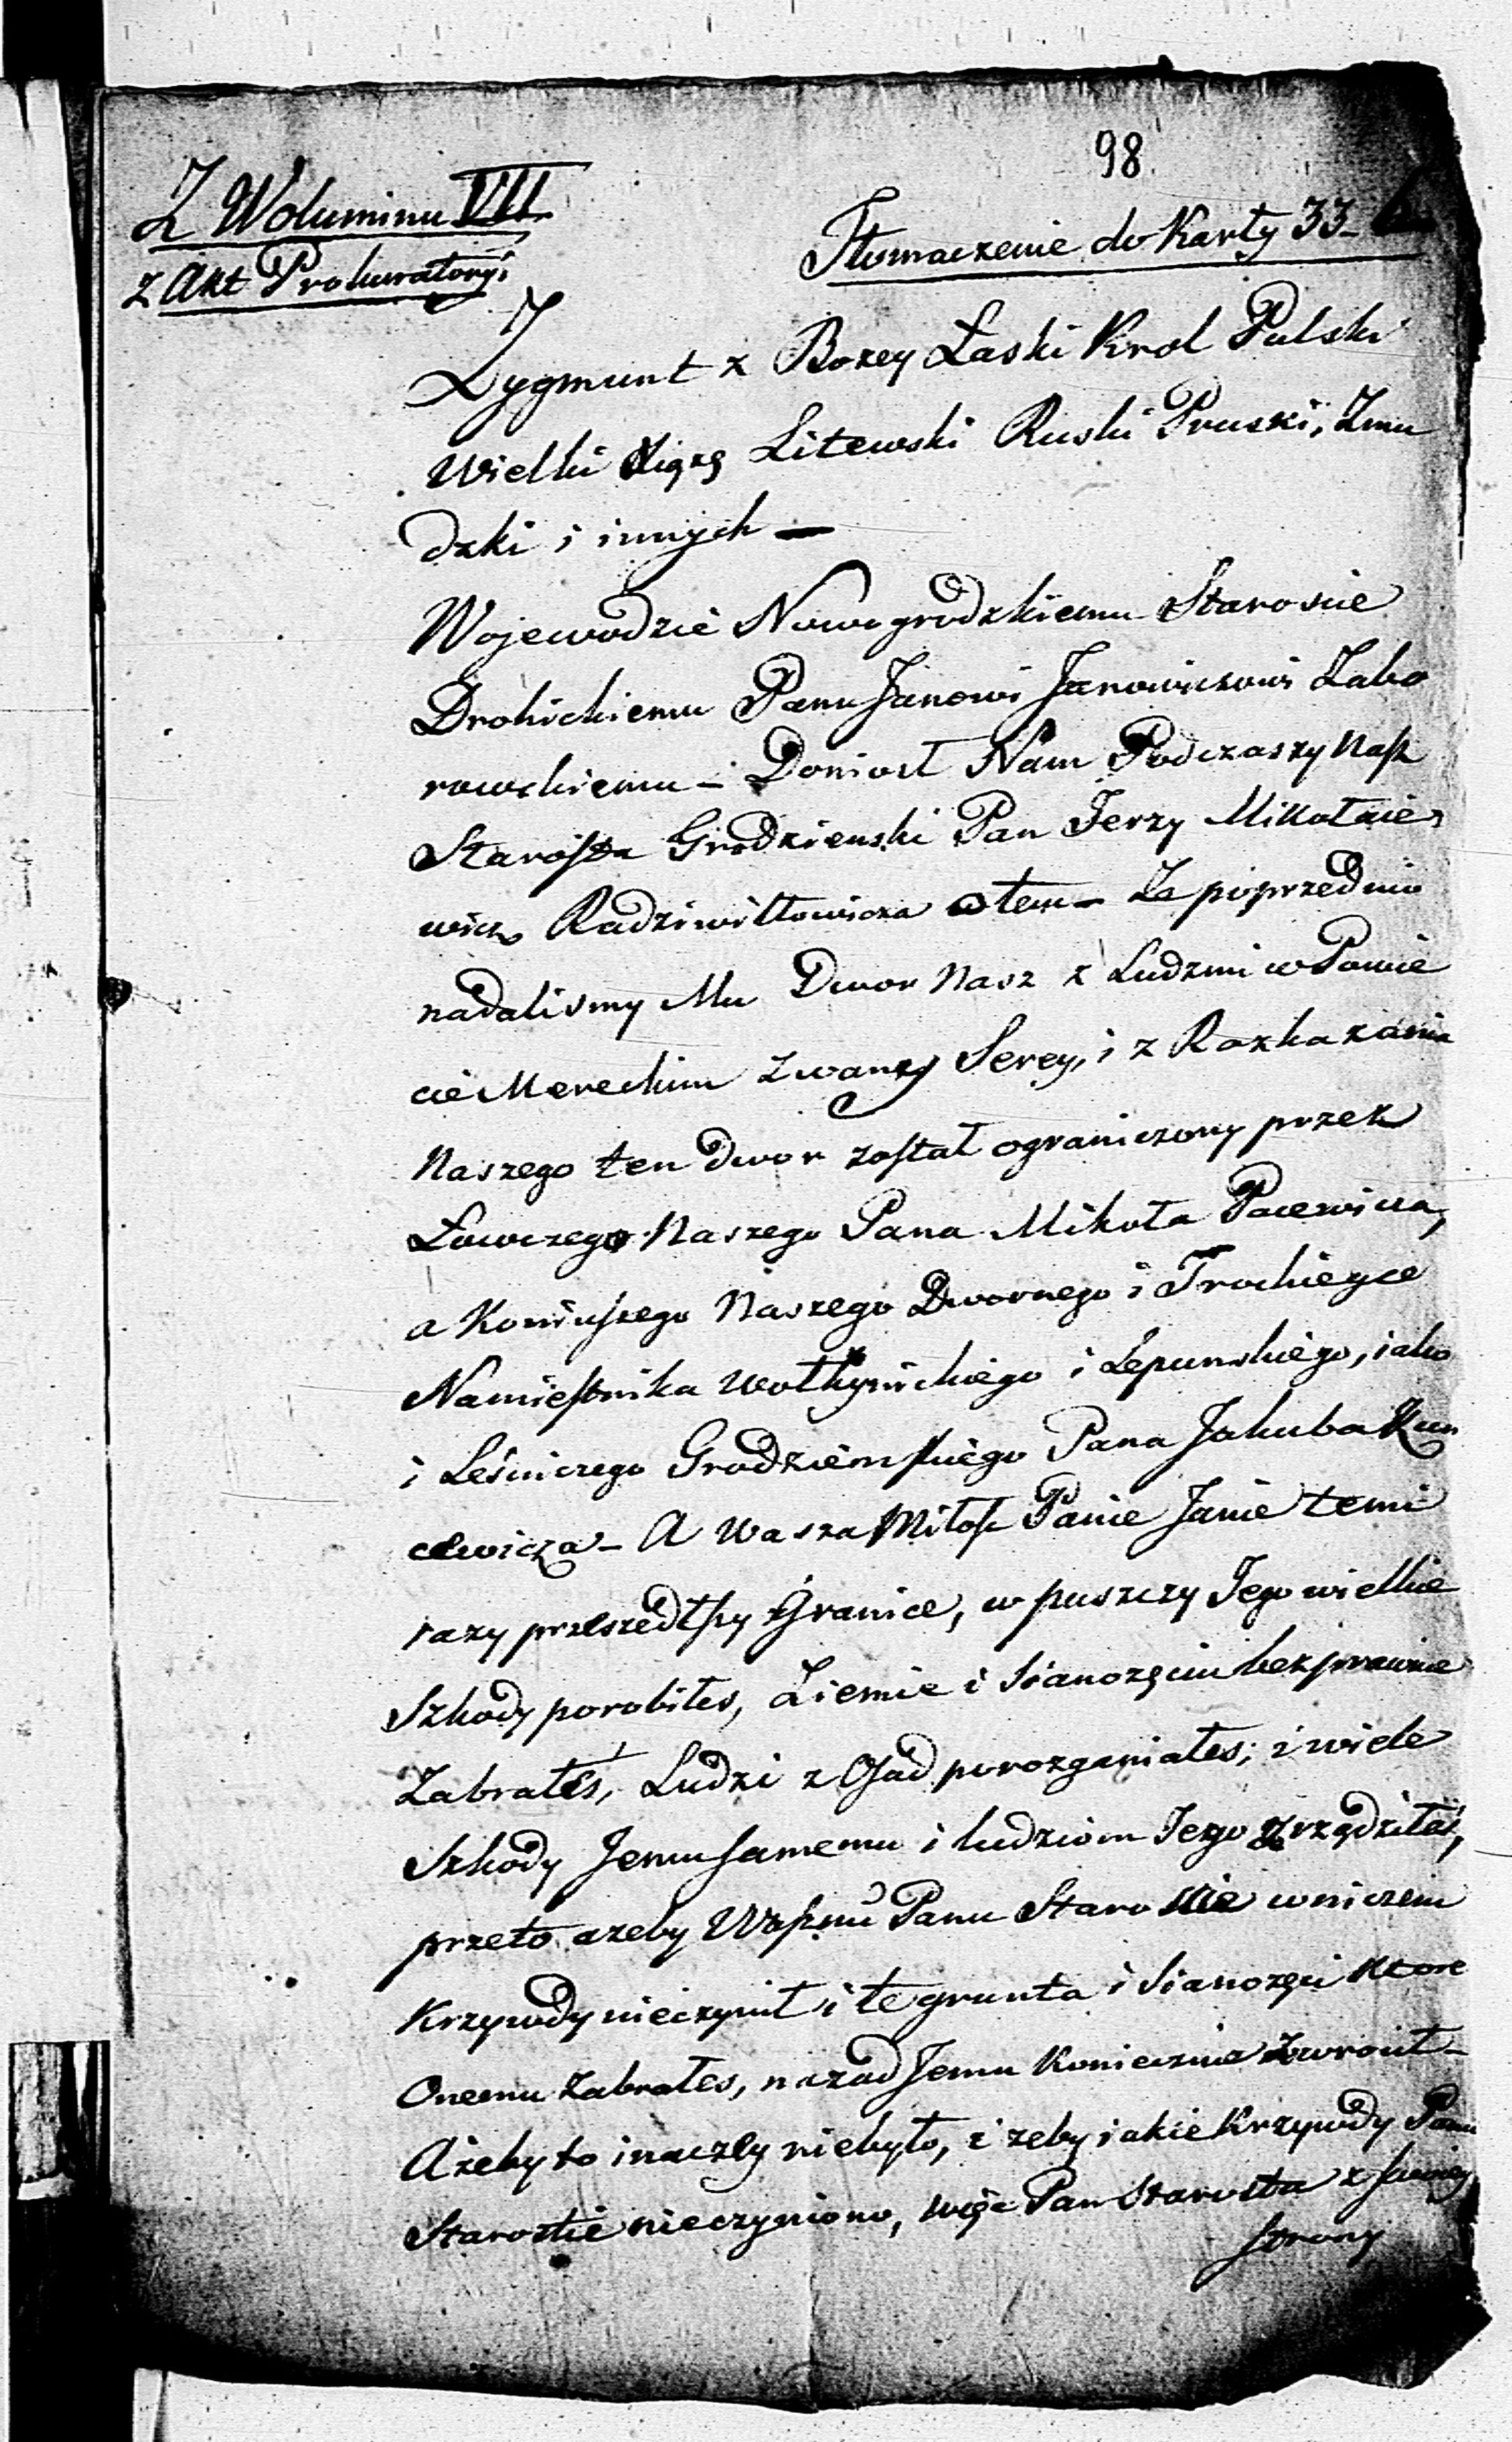 98
Z Woluminu VII
z Akt Prokuratoryi
Tłomaczenie do Karty 33
Zygmunt z Bozey Łaski Krol Polski
Wielki Xiąże Litewski Ruski Pruski, Zmu
dzki i innych —
Wojewodzie Nowogrodzkiemu Staroscie
Drohickiemu Panu Janowi Janowiczowi Zabo
rowskiemu – Doniosł Nam Podczaszy Nasz
Starosta Grodzienski Pan Jerzy Mikołaie
wicz Radziwiłłowicza o tem – Ze poprzednio
nadalismy Mu Dwor Nasz z Ludzmi w Powie
cie Mereckim zwany Serey, i z Rozkazania
Naszego ten dwor został ograniczony przez
Łowczego Naszego Pana Mikoła Pacewicza,
a Koniuszego Naszego Dwornego i Trockiego
Namiestnika Wołkynickiego i Lepunskiego, iako
i Leśniczego Grodzienskiego Pana Jakuba Kun
cewicza – A Wasza Miłosc Panie Janie temi
razy przeszedłszy Granice, w puszczy Jego wielkie
Szkody porobiłes, Ziemie i Sianożęcia bezprawnie
Zabrałeś, Ludzi z Osad porozganiałes; i wiele
Szkody Jemu samemu i ludziom Jego zrządziłeś,
przeto azeby Panu Staroscie w niczem
Krzywdy nieczynił i te grunta i Sianozęci ktore
Onemu Zabrałes, nazad Jemu Koniecznie zwrocił –
Ażeby to inaczey niebyło, i zeby iakie Krzywdy Panu
Staroscie nieczyniono, więc Pan Starosta z swoiey
strony